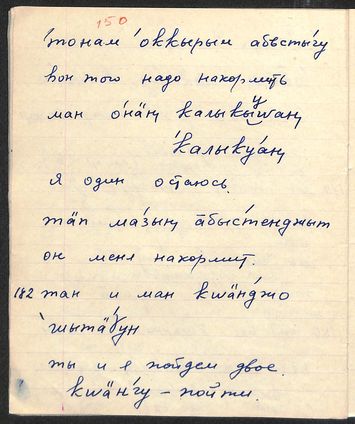 150
'тонам 'оккырың абʹстыʹгу
вон того надо накормить
ман оʹнäң калыкыʹшаң
ʹкалыкуʹаң
я один остаюсь.
тäп маʹзың āбысʹтенджыт
он меня накормит.
182 тан и ман квäнʹджо
ʹшытäɣун
ты и я пойдем двое.
квäнʹгу – пойти.